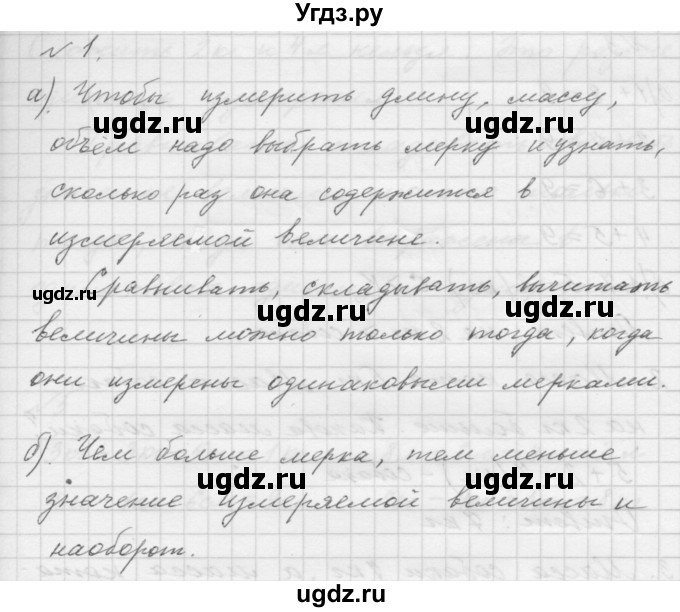 УГдз.ru
№ 1.
а). Чтобы измерить длину, массу,
ugdz.ru ugdz.ru
объём надо выбрать мерку и узнать,
сколько раз она содержится в
ugdz.ru ugdz.ru
измеряемой величине.
Сравнивать, складывать, вычитать
ugdz.ru ugdz.ru
величины можно только тогда, когда
они измерены одинаковыми мерками.
б). Чем больше мерка, тем меньше
ugdz.ru ugdz.ru
значение измеряемой величины и
наоборот.
ugdz.ru ugdz.ru